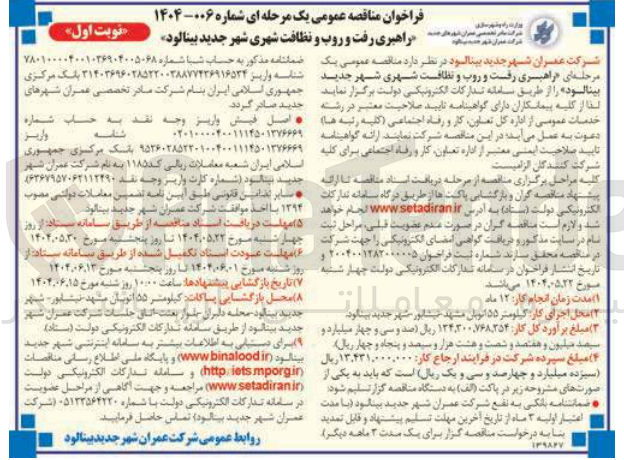 وزارت راه و شهرسازی
شرکت مادر تخصصی عمران شهرهای جدید
شرکت عمران شهر جدید بینالود
فراخوان مناقصه عمومی یک مرحله ای شماره ۰۰۶-۱۴۰۴
«راهبری رفت و روب و نظافت شهری شهر جدید بینالود»
«نوبت اول»
شرکت عمران شهر جدید بینالود در نظر دارد مناقصه عمومی یک
مرحله‌ای «راهبری رفت و روب و نظافت شهری شهر جدید
بینالود» را از طریق سامانه تدارکات الکترونیکی دولت برگزار نماید.
لذا از کلیه پیمانکاران دارای گواهینامه تایید صلاحیت معتبر در رشته
خدمات عمومی از اداره کل تعاون، کار و رفاه اجتماعی (کلیه رتبه ها)
دعوت به عمل می‌آید؛ در این مناقصه شرکت نمایند. ارائه گواهینامه
تایید صلاحیت ایمنی معتبر از اداره تعاون، کار و رفاه اجتماعی برای کلیه
شرکت کنندگان الزامیست.
کلیه مراحل برگزاری مناقصه از مرحله دریافت اسناد مناقصه تا ارائه
پیشنهاد مناقصه گران و بازگشایی پاکت ها از طریق درگاه سامانه تدارکات
الکترونیکی دولت (ستاد) به آدرس www.setadiran.ir انجام خواهد
شد و لازم است مناقصه گران در صورت عدم عضویت قبلی، مراحل ثبت
نام در سایت مذکور و دریافت گواهی امضای الکترونیکی را جهت شرکت
در مناقصه محقق سازند. شماره ثبت فراخوان ۲۰۰۴۰۰۱۲۸۲۰۰۰۰۰۵ و
تاریخ انتشار فراخوان در سامانه تدارکات الکترونیکی دولت چهار شنبه
مورخ ۱۴۰۴.۰۵.۲۲ می‌باشد.
۱)مدت زمان انجام کار: ۱۲ ماه
۲)محل اجرای کار: کیلومتر ۵۵ اتوبان مشهد-نیشابور-شهر جدید بینالود.
۳)مبلغ برآورد کل کار: ۱۳۴,۳۰۰,۷۶۸,۳۵۴ ریال (صد و سی و چهار میلیارد و
سیصد میلیون و هفتصد و شصت و هشت هزار و سیصد و پنجاه و چهار ریال).
۴)مبلغ سپرده شرکت در فرایند ارجاع کار: ۱۳,۴۳۱,۰۰۰,۰۰۰ ریال
(سیزده میلیارد و چهارصد و سی و یک میلیون ریال) است که باید به یکی از
صورت‌های مشروحه زیر در پاکت (الف) به دستگاه مناقصه گزار تسلیم شود:
• ضمانتنامه بانکی به نفع شرکت عمران شهر جدید بینالود (با مدت
اعتبار اولیه ۳ ماه از تاریخ آخرین مهلت تسلیم پیشنهاد و قابل تمدید
بنا به درخواست مناقصه گزار برای یک مدت ۳ ماهه دیگر).
۱۳۹۸۶۷
ضمانتامه مذکور به حساب شبا شماره
شناسه واریز
بانک مرکزی
جمهوری اسلامی ایران بنام شرکت مادر تخصصی عمران شهرهای
جدید صادر گردد.
• اصل فیش واریز وجه نقد به حساب شماره
شناسه واریز
بانک مرکزی جمهوری
اسلامی ایران شعبه معاملات ریالی کد ۱۱۸۵ به نام شرکت عمران شهر
جدید بینالود (شماره کارت واریز وجه نقد
• سایر تضامین قانونی طبق آیین نامه تضمین معاملات دولتی مصوب
۱۳۹۴ با اخذ موافقت شرکت عمران شهر جدید بینالود.
۵)مهلت دریافت اسناد مناقصه از طریق سامانه ستاد: از روز
چهار شنبه مورخ ۱۴۰۴.۰۵.۲۲ تا روز پنجشنبه مورخ ۱۴۰۴.۰۵.۳۰.
۶)مهلت عودت اسناد تکمیل شده از طریق سامانه ستاد: از
روز شنبه مورخ ۱۴۰۴.۰۶.۰۱ تا روز پنجشنبه مورخ ۱۴۰۴.۰۶.۱۳.
۷)تاریخ بازگشایی پیشنهادها: ساعت ۱۰:۰۰ روز شنبه مورخ ۱۴۰۴.۰۶.۱۵
۸)محل بازگشایی پاکات: کیلومتر ۵۵ اتوبان مشهد-نیشابور- شهر
جدید بینالود-محله دلبران-بلوار بعثت-اتاق جلسات شرکت عمران شهر
جدید بینالود از طریق سامانه تدارکات الکترونیکی دولت (ستاد).
۹)برای دستیابی به اطلاعات بیشتر به سامانه اینترنتی شهر جدید
بینالود (www.binalood.ir) و پایگاه ملی اطلاع رسانی مناقصات
(http://iets.mporg.ir) و سامانه تدارکات الکترونیکی دولت
(www.setadiran.ir) مراجعه و جهت آگاهی از مراحل عضویت
در سامانه تدارکات الکترونیکی دولت با شماره ۰۵۱۳۳۵۶۴۲۲۰ (شرکت
عمران شهر جدید بینالود) تماس حاصل فرمایید.
روابط عمومی شرکت عمران شهر جدید بینالود